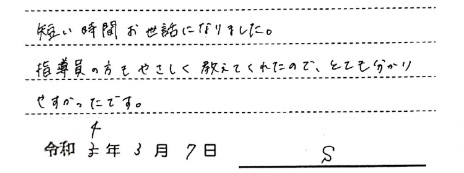 短い時間お世話になりました。
指導員の方もやさしく教えてくれたので、とても分かり
やすかったです。
令和 4 年 3 月 7 日 S